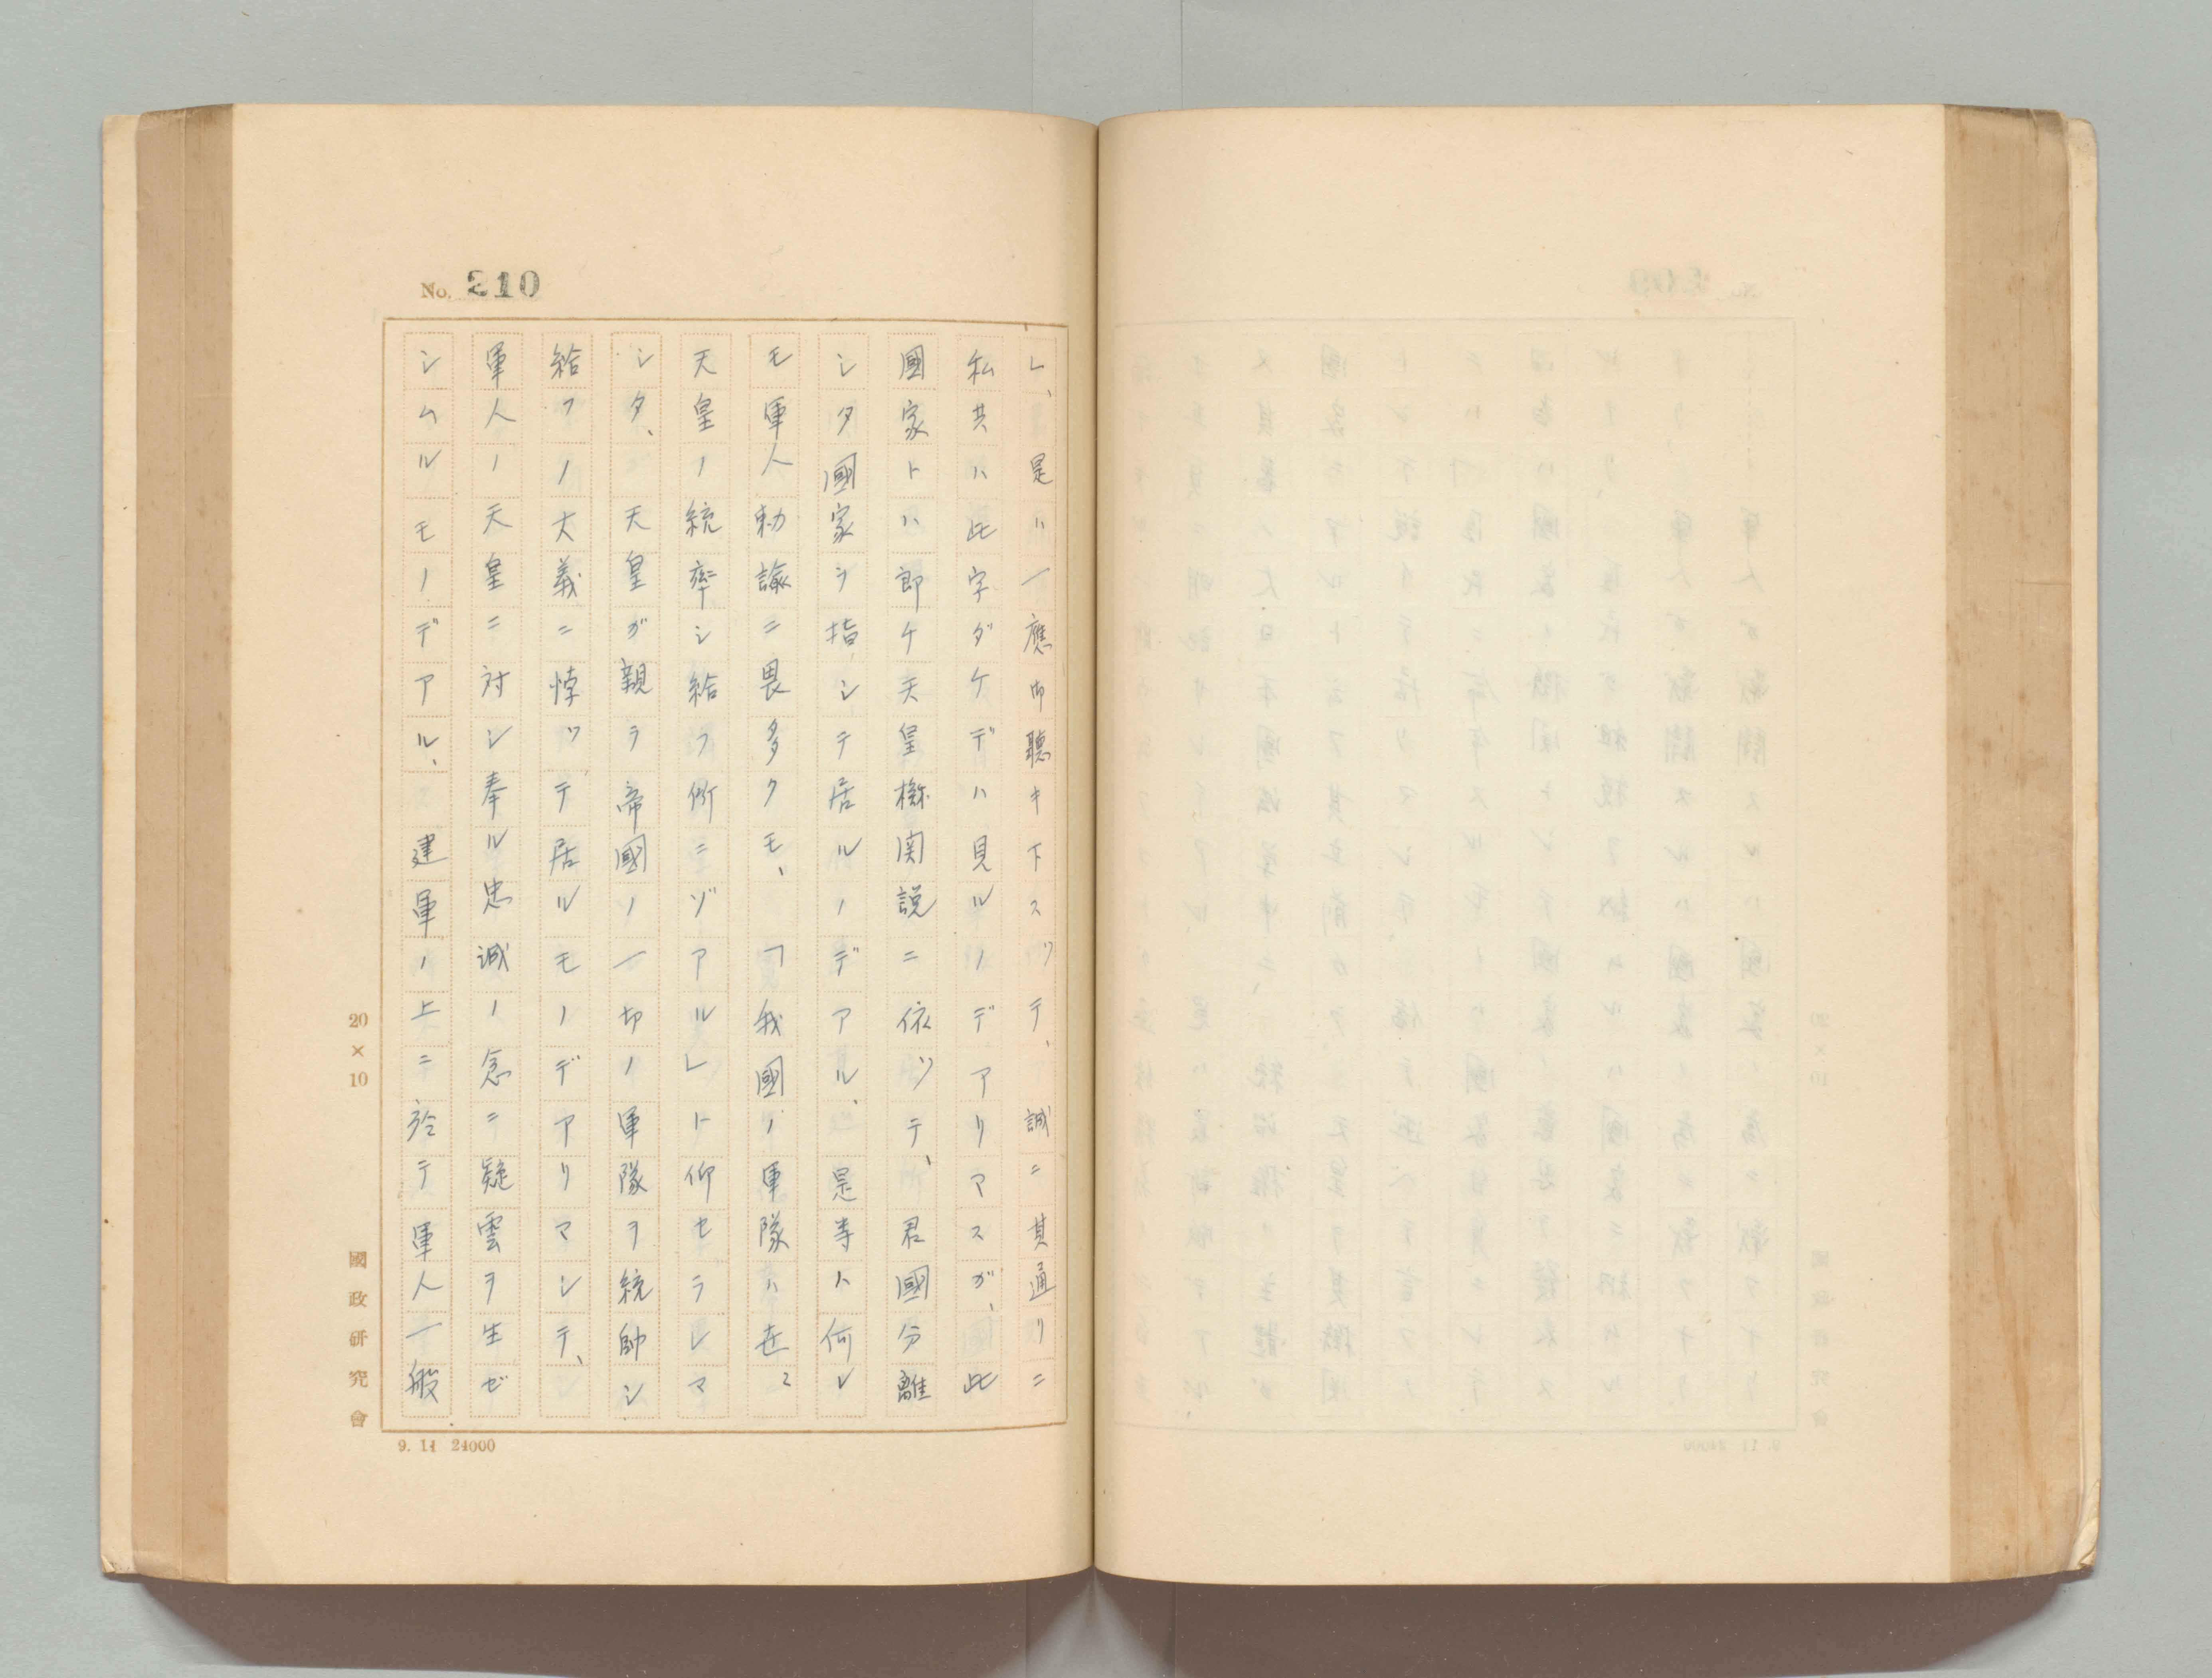 No. 210
レ、是ハ一應御聽キ下スツテ、誠ニ其通リニ
私共ハ此字ダケデハ見ルノデアリマスガ、此
國家トハ即チ天皇機関説ニ依ツテ、君國分離
シタ國家ヲ指シテ居ルノデアル、是等ハ何レ
モ軍人勅諭ニ畏多クモ、「我國ノ軍隊ハ世〻
天皇ノ統率シ給フ所ニゾアルレト仰セラレマ
シタ、天皇ガ親ラ帝國ノ一切ノ軍隊ヲ統帥シ
給フノ大義ニ悖ツテ居ルモノデアリマシテ、
軍人ノ天皇ニ対シ奉ル忠誠ノ念ニ疑雲ヲ生ゼ
シムルモノデアル、建軍ノ上ニ於テ軍人一般
20×10
國政研究會
9. 11 24000